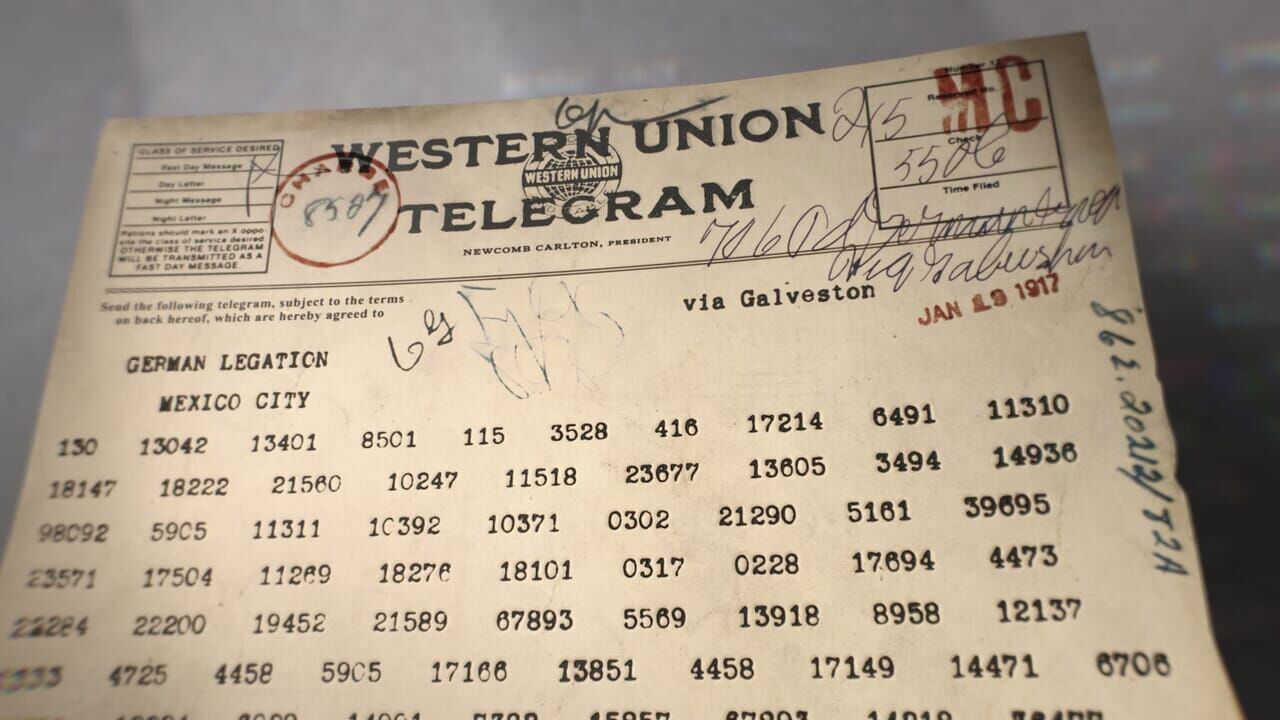 WESTERN UNION
WESTERN UNION
TELEGRAM
NEWCOMB CARLTON, PRESIDENT
CLASS OF SERVICE DESIRED
Fast Day Message X
Day Letter
Night Message
Night Letter
Patrons should mark an X oppo-
site the class of service desired;
OTHERWISE THE TELEGRAM
WILL BE TRANSMITTED AS A
FAST DAY MESSAGE.
CHARGE
8507
215
MC
Check
5506
Time Filed
Send the following telegram, subject to the terms
on back hereof, which are hereby agreed to
via Galveston
JAN 19 1917
GERMAN LEGATION
MEXICO CITY
130 13042 13401 8501 115 3528 416 17214 6491 11310
18147 18222 21560 10247 11518 23677 13605 3494 14936
98092 5905 11311 10392 10371 0302 21290 5161 39695
23571 17504 11269 18276 18101 0317 0228 17694 4473
22284 22200 19452 21589 67893 5569 13918 8958 12137
4725 4458 5905 17166 13851 4458 17149 14471 6706